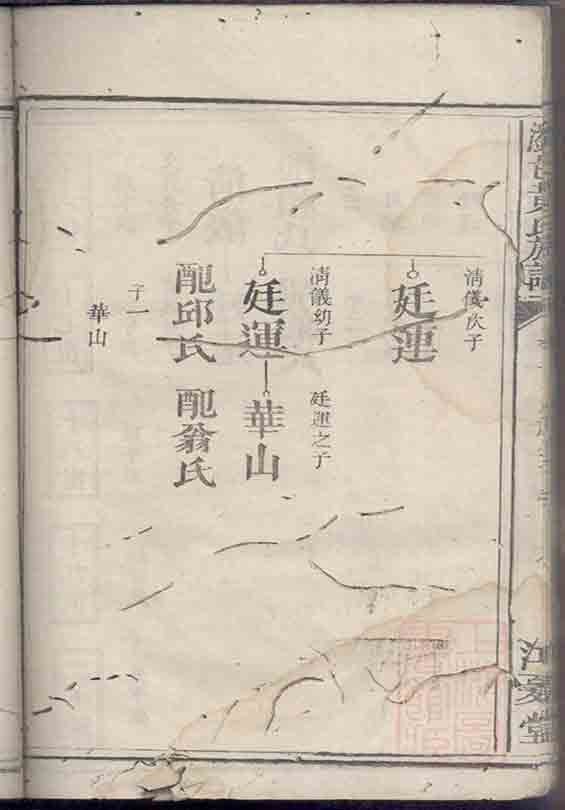 黃氏族譜
江夏堂
清儀次子
廷連
清儀幼子
廷運
配邱氏
子一
華山
廷運之子
華山
配翁氏